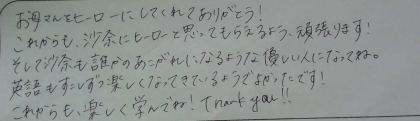 お母さんをヒーローにしてくれてありがとう!
これからも、沙奈にヒーローと思ってもらえるよう、頑張ります!
そして沙奈も誰かのあこがれになるような優しい人になってね。
英語もすこしずつ楽しくなってきているようでよかったです!
これからも、楽しく学んでね! Thank you!!